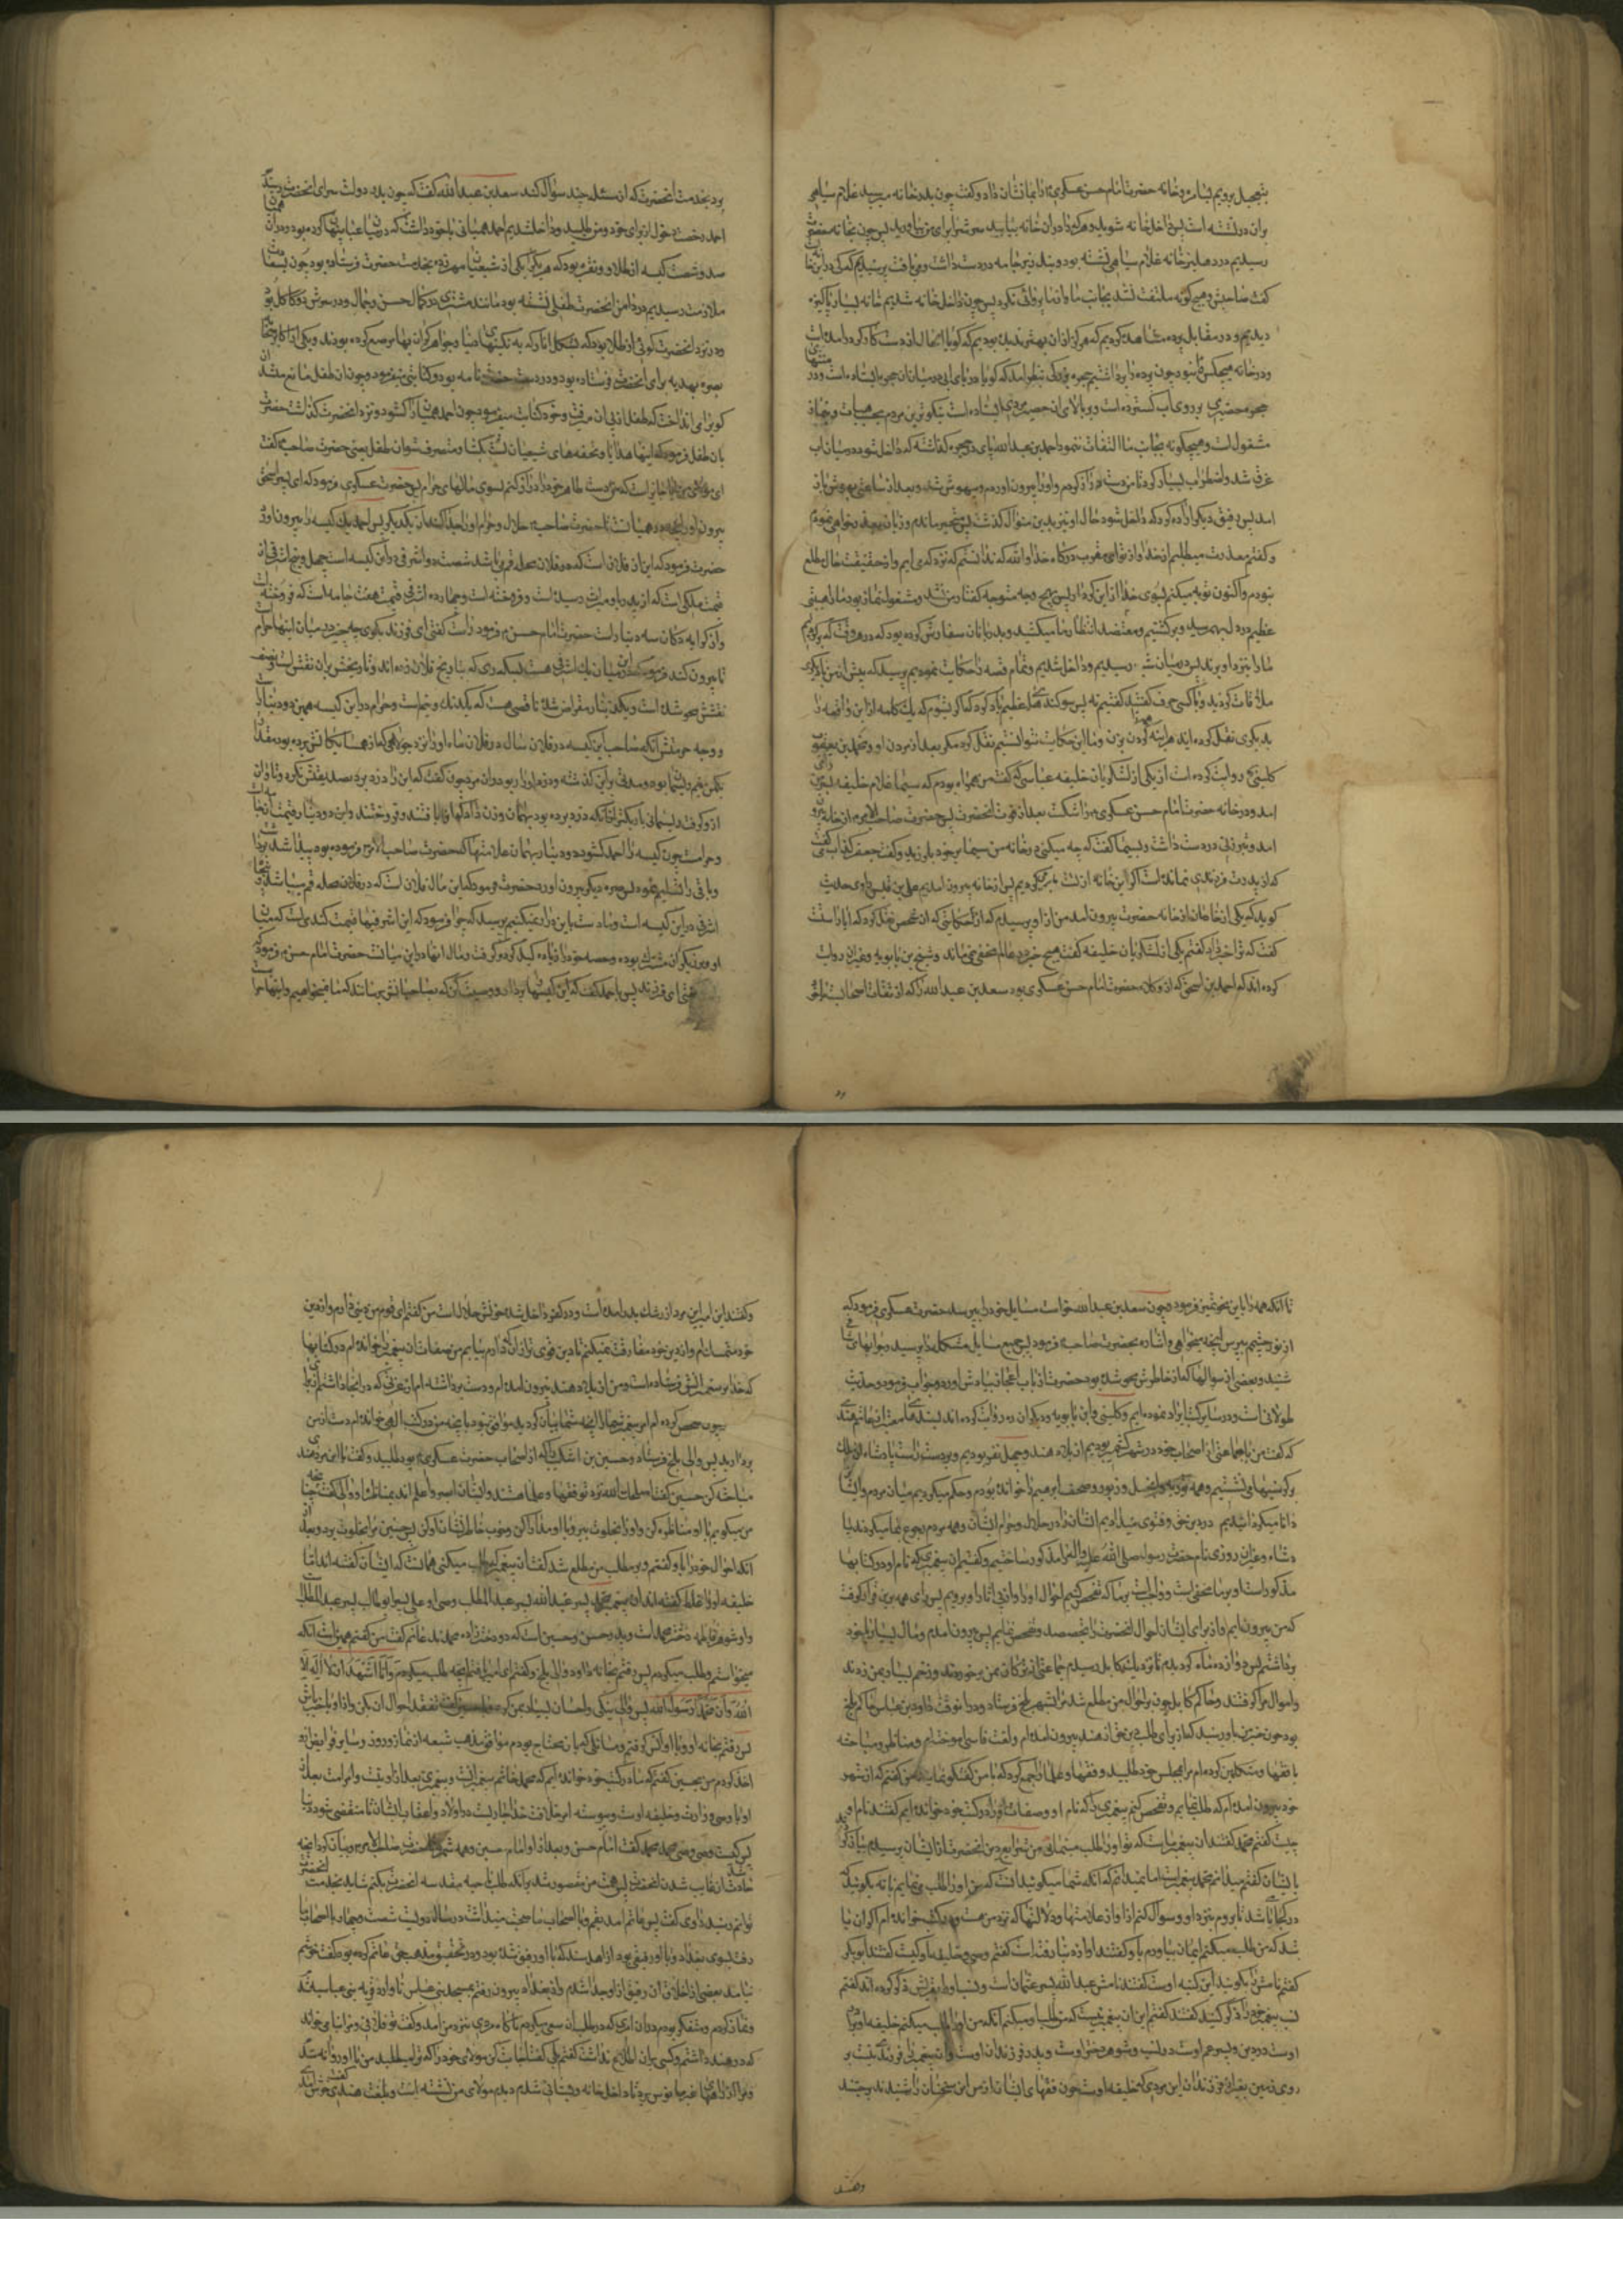 بتعجیل برویم بسامره و خانه حضرت امام حسن عسکری را بما نشان داد و گفت چون بدر خانه میرسید غلام سیاهی
بران در نشسته است پس داخل خانه شوید و هر که را در ان خانه بیابید سرش را برای من بیاورید پس چون بخانه حضرت
رسیدیم در دهلیز خانه غلام سیاهی نشسته بود و بند زیر جامه در دست داشت و می بافت پرسیدیم که کی در این خانه
گفت صاحبش و هیچ گونه ملتفت نشد بجانب ما و از ما پروائی نکرد پس چون داخل خانه شدیم خانه بسیار پاکیزه
دیدیم و در مقابل پرده مشاهده کردیم که هرگز از ان بهتر ندیده بودیم که گویا الحال از دست کارگر در امده است
و در خانه هیچکس نبود چون پرده را برداشتیم حجره بزرگی بنظر امد که گویا دریای ابی در میان ان حجره ایستاده است و در منتهای
حجره حصیری بر روی اب گسترده است و بر بالای ان حصیر مردی ایستاده است نیکوترین مردم بحسب هیات و نماز
مشغولست و هیچگونه بجانب ما التفات ننمود احمد بن عبدالله پای در حجره گذاشت که داخل شود در میان اب
غرق شد و اضطراب بسیار کرد تا من دست دراز کردم و او را بیرون اوردم و بیهوش شد و بعد از ساعتی بهوش باز
امد پس رفیق دیگر اراده کرد که داخل شود و حال او نیز بدین منوال گذشت پس من متحیر ماندم و زبان بعذرخواهی گشودم
و گفتم معذرت میطلبم از خدا و از تو ای مقرب درگاه خدا والله که ندانستم که نزد که می ایم و از حقیقت حال مطلع
نبودم و اکنون توبه میکنم بسوی خدا از این کردار پس بهیچ وجه متوجه گفتار من نشد و مشغول نماز بود ما را هیبتی
عظیم در دل بهم رسید و برگشتیم و معتضد انتظار ما میکشید و بدربانان سفارش کرده بود که در هر وقت که برگردیم
ما را بنزد او برند پس در میان شب رسیدیم و داخل شدیم و تمام قصه را حکایت نمودیم پرسید که پیش از من با دیگری
ملاقات کردید و با کسی حرفی گفتید گفتیم نه پس سوگندهای عظیم یاد کرد که اگر بشنوم که یک کلمه از این واقعه را
بدیگری نقل کرده اید هراینه همه را گردن بزنم و ما این حکایت نتوانستیم نقل کرد مگر بعد از مردن او و محمد بن یعقوب
کلینی روایت کرده است از یکی از لشکریان خلیفه عباسی که گفت من همراه بودم که سیما غلام خلیفه بسرمن رای
امد و در خانه حضرت امام حسن عسکری را شکست بعد از فوت انحضرت پس حضرت صاحب الامر از خانه بیرون
امد و تبرزینی در دست داشت و بسیما گفت که چه میکنی در خانه من سیما بر خود بلرزید و گفت جعفر کذاب میگفت
که از پدرت فرزندی نمانده است اگر این خانه از تست ما برمیگردیم پس از خانه بیرون امدیم علی بن قیس راوی حدیث
گوید که یکی از خادمان از خانه حضرت بیرون امد من از او پرسیدم که از حکایتی که ان شخص نقل کرد که ایا راست
گفت که ترا خبر داد گفتم یکی از لشکریان خلیفه گفت هیچ خبر در عالم مخفی نمی ماند و شیخ بن بابویه و غیران روایت
کرده اند که احمد بن اسحق که از وکلاء حضرت امام حسن عسکری بود سعد بن عبدالله را که از ثقات اصحابست با خود
برد بخدمت انحضرت که از مسئله چند سؤال کند سعد بن عبدالله گفت که چون بدر دولت سرای انحضرت رسیدیم
احمد رخصت دخول از برای خود و من طلبید و داخل شدیم احمد همیانی با خود داشت که در میان عبا پنهان کرده بود و در ان همیان
صد و شصت کیسه از طلا و نقره بود که هر یک را یکی از شیعیان مهر زده بخدمت حضرت فرستاده بود چون بسعادت
ملازمت رسیدیم در دامن انحضرت طفلی نشسته بود مانند مشتری در کمال حسن و جمال و در سرش دو کاکل بود
و در نزد انحضرت گوئی از طلا بود که بشکل انار که به نگینهای زیبا و جواهر گرانبها مرصع کرده بودند و یکی از اکابر
بصره بهدیه برای انحضرت فرستاده بود و در دست حضرت نامه بود و کتابتی میفرمود و چون ان طفل مانع میشد
گو را می انداخت که طفل از پی ان میرفت و خود کتابت میفرمود چون احمد همیان را گشود و نزد انحضرت گذاشت حضرت
بان طفل فرمود که اینها هدایا و تحفه های شیعیان تست بگشا و متصرف شو ان طفل یعنی حضرت صاحب گفت
ای مولای من ایا جایز است که من دست طاهر خود را دراز کنم بسوی مالهای حرام پس حضرت عسکری فرمود که ای پسر اسحق
بیرون اور انچه در همیانست تا حضرت صاحب حلال و حرام او را جدا کند از یکدیگر پس احمد یک کیسه را بیرون اورد
حضرت فرمود که این از فلان است که در فلان محله قم می باشد شصت و دو اشرفی در این کیسه است چهل و پنج اشرفی از
قیمت ملکی است که از پدر باو میراث رسیده است و فروخته است و چهارده اشرفی قیمت هفت جامه است که فروخته است
و از کرایه دکان سه دینار است حضرت امام حسن فرمود راست گفتی ای فرزند بگو چه چیز در میان اینها حرام است
تا بیرون کند فرمود که در این میان یک اشرفی هست بسکه ری که بتاریخ فلان زده اند و تاریخش بران نقش است و نصف
نقشش محو شده است و یک دینار مقراض شده ناقص هست که یکدانگ و نیم است و حرام در این کیسه همین دو دینار است
و وجه حرمتش انکه صاحب این کیسه در فلان سال در فلان ماه او را نزد جولاهی که از همسایگانش بوده بود مقدار
یکمن و نیم ریسمان بود و مدتی بر این گذشته و دزد او را ربود و ان مرد چون گفت که این را دزد برد تصدیقش نکرد و تاوان
از او گرفت ریسمانی باریکتر از انکه دزد برده بود بهمان وزن داد که انرا بافتند و فروختند و این دو دینار از قیمت ان جامه
و حرامست چون کیسه را احمد گشود دو دینار بهمان علامتها که حضرت صاحب الامر فرموده بود پیدا شد برداشت
و باقی را تسلیم نمود پس صره دیگر بیرون اورد حضرت فرمود که این مال فلان است که در فلان محله قم می باشد پنجاه
اشرفی در این کیسه است و ما دست باین دراز نمیکنیم پرسید که چرا فرمود که این اشرفیها قیمت گندمی است که میان
او و برزیگران مشترک بوده و حصه خود را زیاده کیل کرد و گرفت و مال انها در این میانست حضرت امام حسن فرمود که راست
گفتی ای فرزند پس باحمد گفت که این کیسها بردار و وصیت کن که بصاحبانش برسانند که ما نمیخواهیم و اینها حرام است
تا انکه همه را باین نحو تمیز فرمود و چون سعد بن عبدالله خواست مسایل خود را بپرسد حضرت عسکری فرمود که
از نور چشمم بپرس انچه میخواهی و اشاره بحضرت صاحب فرمود پس جمیع مسایل مشکله را پرسید و جوابهای شافی
شنید و بعضی از سوالها که از خاطرش محو شده بود حضرت از باب اعجاز بیادش اورد و جواب فرمود و حدیث
طولانی است و در سایر کتب ایراد نموده ایم و کلینی و ابن بابویه و دیگران روایت کرده اند بسندهای معتبر از غانم هندی
که گفت من با جماعتی از اصحاب خود در شهر کشمیر بودیم از بلاد هند و چهل نفر بودیم و بر دست راست پادشاه ان ملک
بر کرسیها می نشستیم و همه توریة و انجیل و زبور و صحف ابرهیم را خوانده بودیم و حکم میکردیم میان مردم و ایشان
را دانا میگردانیدیم در دین خود و فتوی میدادیم ایشان را در حلال و حرام ایشان و همه مردم رجوع بما میکردند پادشاه
و غیران روزی نام حضرت رسول صلی الله علیه و اله را مذکور ساختیم و گفتیم ان پیغمبری که نام او در کتابها
مذکور است امر او بر ما مخفی است و واجبست بر ما که تفحص کنیم احوال او را و از پی اثار او برویم پس رای همه بر این قرار گرفت
که من بیرون ایم و از برای ایشان احوال انحضرت را تجسس نمایم پس بیرون امدم و مال بسیار با خود
برداشتم پس دوازده ماه گردیدم تا نزدیک بکابل رسیدم جماعتی از ترکان بمن برخوردند و زخم بسیار بمن زدند
و اموال مرا گرفتند و حاکم کابل چون بر احوال من مطلع شد مرا بشهر بلخ فرستاد و در ان وقت داود بن عباس حاکم بلخ
بود چون خبر من باو رسید که از برای طلب دین حق از هند بیرون امده ام و لغت فارسی اموخته ام و مناظره و مباحثه
با فقها و متکلمین کرده ام مرا بمجلس خود طلبید و فقها و علما را جمع کرد که با من گفتگو نمایند من گفتم که از شهر
خود بیرون امده ام که طلب نمایم و تفحص کنم پیغمبری را که نام او و صفات او را در کتب خود خوانده ایم گفتند نام او
چیست گفتم محمد گفتند ان پیغمبر ماست که تو او را طلب مینمائی من شرایع دین انحضرت را از ایشان پرسیدم بیان کردند
بایشان گفتم میدانم محمد پیغمبر است اما نمیدانم که انکه شما میگوئید انست که من او را طلب می نمایم یا نه بگوئید که او
در کجا می باشد تا بروم بنزد او و سوال کنم از او از علامتها و دلالتها که نزد من هست و در کتب خوانده ام اگر ان باشد
که من طلب میکنم ایمان بیاورم باو گفتند او از دنیا رفته است گفتم وصی و خلیفه او کیست گفتند ابوبکر
گفتم نامش را بگوئید این کنیه اوست گفتند نامش عبدالله پسر عثمان است و نسب او را بقریش ذکر کردند گفتم
نسب پیغمبر خود را ذکر کنید گفتند گفتم این ان پیغمبر نیست که من طلب او میکنم انکه من او را طلب میکنم خلیفه او برادر
اوست در دین و پسر عم اوست در نسب و شوهر دختر اوست و پدر فرزندان اوست و ان پیغمبر را فرزندی نیست بر
روی زمین بغیر از فرزندان این مردی که خلیفه اوست چون فقهای ایشان از من این سخنان را شنیدند برجستند
و گفتند این امیر این مرد از شرک بدر امده است و در کفر داخل شده خونش حلال است من گفتم ای قوم من دینی دارم و از دین
خود متمسک ام و از دین خود مفارقت نمیکنم تا دین قوی تر از ان که دارم بیابم من صفات ان پیغمبر را خوانده ام در کتابها
که خدا بر پیغمبرانش فرستاده است و من از بلاد هند بیرون امده ام و دست برداشته ام از عزتی که در انجا داشتم از برای
چون تفحص کردم امر پیغمبر شما را از انچه شما بیان کردید موافق نبود با انچه من در کتب الهی خوانده ام دست از من
بردارید پس والی بلخ فرستاد و حسین بن اشکیب را که از اصحاب حضرت عسکری بود طلبید و گفت با این مرد هندی
مباحثه کن حسین گفت اصلحک الله نزد تو فقها و علما هستند و ایشان ابصر و اعلم اند بمناظره او والی گفت چنانچه
من میگویم با او مناظره کن و او را بخلوت ببر و با او مدارا کن و خوب خاطرنشان او کن پس حسین مرا بخلوت برد و بعد از
انکه احوال خود را باو گفتم و بر مطلب من مطلع شد گفت ان پیغمبری که طلب میکنی همانست که ایشان گفته اند اما
خلیفه او را غلط گفته اند ان پیغمبر محمد پسر عبدالله پسر عبدالمطلب و وصی او علی پسر ابو طالب پسر عبدالمطلب
و او شوهر فاطمه دختر محمد است و پدر حسن و حسین است که دو دخترزاده محمدند غانم گفت من گفتم همین است انکه
میخواستم و طلب میکردم پس رفتم بخانه داود والی بلخ و گفتم ای امیر یافتم انچه طلب میکردم و انا اشهد ان لا اله الا
الله و ان محمدا رسول الله پس والی نیکی و احسان بسیار بمن کرد و بحسین گفت تفقد احوال ان بکن و از او باخبر باش
پس رفتم بخانه او و با او انس گرفتم و مسائلی که بان محتاج بودم موافق مذهب شیعه از نماز و روزه و سایر فرایض از او
اخذ کردم من بحسین گفتم که ما در کتب خود خوانده ایم که محمد خاتم پیغمبرانست و پیغمبری بعد از او نیست و امر امت بعد از
او با وصی و وارث و خلیفه اوست و پیوسته امر خلافت خدا جاریست در اولاد و اعقاب ایشان تا منقضی شود دنیا
پس کیست وصی وصی محمد گفت امام حسن و بعد از او امام حسین و همه را شمرد تا حضرت صاحب الامر و بیان کرد انچه
حادث شد از غایب شدن انحضرت پس همت من مقصور شد بر انکه طلب ناحیه مقدسه انحضرت بکنم شاید بخدمت انحضرت
توانم رسید راوی گفت پس غانم امد بقم و با اصحاب ما صحبت میداشت در سال دویست و شصت و چهار و با اصحاب ما
رفت بسوی بغداد و با او رفیقی بود از اهل سند که با او رفیق شده بود در تحقیق مذهب حق غانم گفت خوشم
نیامد بعضی از اخلاق ان رفیق از او جدا شدم و از بغداد بیرون رفتم بمسجد بنی عباس تا وارد قریه بنی عباسیه شدم
و نماز کردم و متفکر بودم در ان امری که در طلب ان سعی میکردم ناگاه مردی بنزد من امد و گفت تو فلانی و مرا نامی خواند
که در هند داشتم و کسی بران اطلاع نداشت گفتم بلی گفت اجابت کن مولای خود را که ترا میطلبد من با او روانه شدم
و مرا از راههای غیر مانوس برد تا داخل خانه و بستانی شدم دیدم مولای من نشسته است و بلغت هندی گفت خوش امدی
وهند